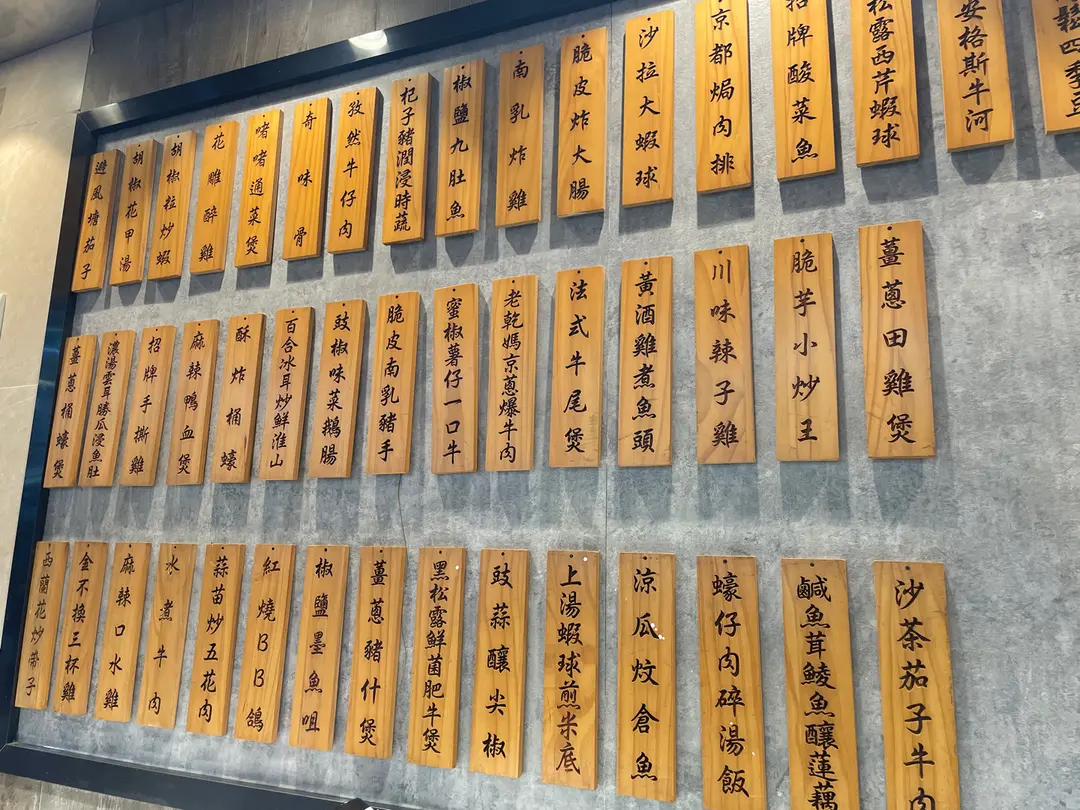 避風塘茄子
胡椒花甲湯
胡椒粒炒蝦
花雕醉雞
啫啫通菜煲
奇味骨
孜然牛仔肉
杞子豬潤浸時蔬
椒鹽九肚魚
南乳炸雞
脆皮炸大腸
沙拉大蝦球
京都焗肉排
招牌酸菜魚
松露西芹蝦球
安格斯牛河
鬆四季豆
薑蔥桶蠔煲
濃湯雲耳勝瓜浸魚肚
招牌手撕雞
麻辣鴨血煲
酥炸桶蠔
百合冰耳炒鮮淮山
豉椒味菜鵝腸
脆皮南乳豬手
蜜椒薯仔一口牛
老乾媽京蔥爆牛肉
法式牛尾煲
黃酒雞煮魚頭
川味辣子雞
脆芋小炒王
薑蔥田雞煲
西蘭花炒帶子
金不換三杯雞
麻辣口水雞
水煮牛肉
蒜苗炒五花肉
紅燒BB鴿
椒鹽墨魚咀
薑蔥豬什煲
黑松露鮮菌肥牛煲
豉蒜釀尖椒
上湯蝦球煎米底
涼瓜炆倉魚
蠔仔肉碎湯飯
鹹魚茸鯪魚釀蓮藕
沙茶茄子牛肉